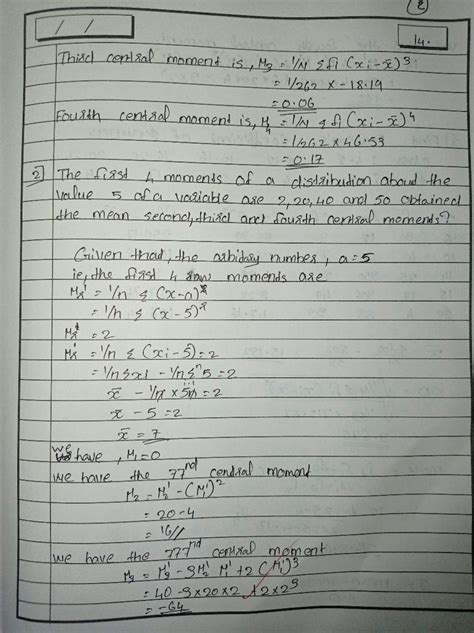 2
/ /
14.
Third central moment is, M3 = 1/N Σfi (xi-x̄)3
= 1/262 x -18.19
= 0.06
Fourth central moment is, M4 = 1/N Σfi (xi-x̄)4
= 1/262 x 46.53
= 0.17
2) The first 4 moments of a distribution about the
value 5 of a variable are 2,20,40 and 50 obtained
the mean second, third and fourth central moments?
Given that, the arbidary number, a=5
ie, the first 4 raw moments are
Mr' = 1/n Σ (x-a)r
= 1/n Σ (x-5)r
= 2
M1' = 1/n Σ (xi-5) = 2
= 1/n Σxi - 1/n Σ5 = 2
x̄ - 1/n x 5n = 2
x̄ - 5 = 2
x̄ = 7
we have, M1=0
we have the 77nd central moment
M2 = M2' - (M1')2
= 20-4
= 16//
we have the 777nd central moment
M3 = M3' - 3M2' M1' + 2(M1')3
= 40-3x20x2 + 2x23
= -64